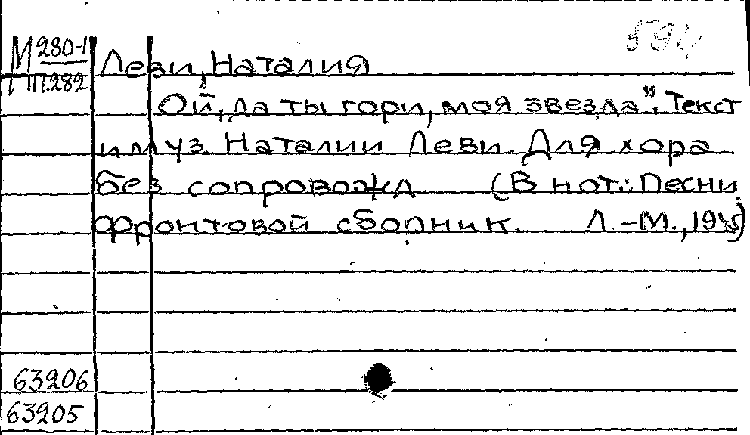 594
М 280-1 Леви, Наталия
П.282
„Ой, да ты гори, моя звезда". Текст
и муз. Наталии Леви. Для хора
без сопровожд (В нот.: Песни.
Фронтовой сборник. Л.-М.,
63206
63205